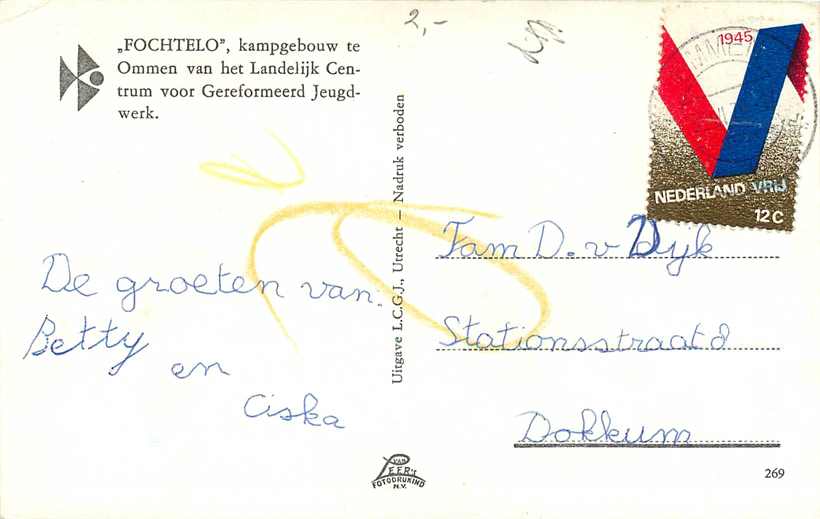 2,-
„FOCHTELO", kampgebouw te
Ommen van het Landelijk Cen-
trum voor Gereformeerd Jeugd-
werk.
De groeten van:
Betty
en
Ciska
Uitgave L.C.G.J., Utrecht — Nadruk verboden
1945
NEDERLAND VRIJ
12 C
Fam D. v Dijk
Stationsstraat 8
Dokkum
VAN
LEER'S
FOTODRUKIND
N.V.
269